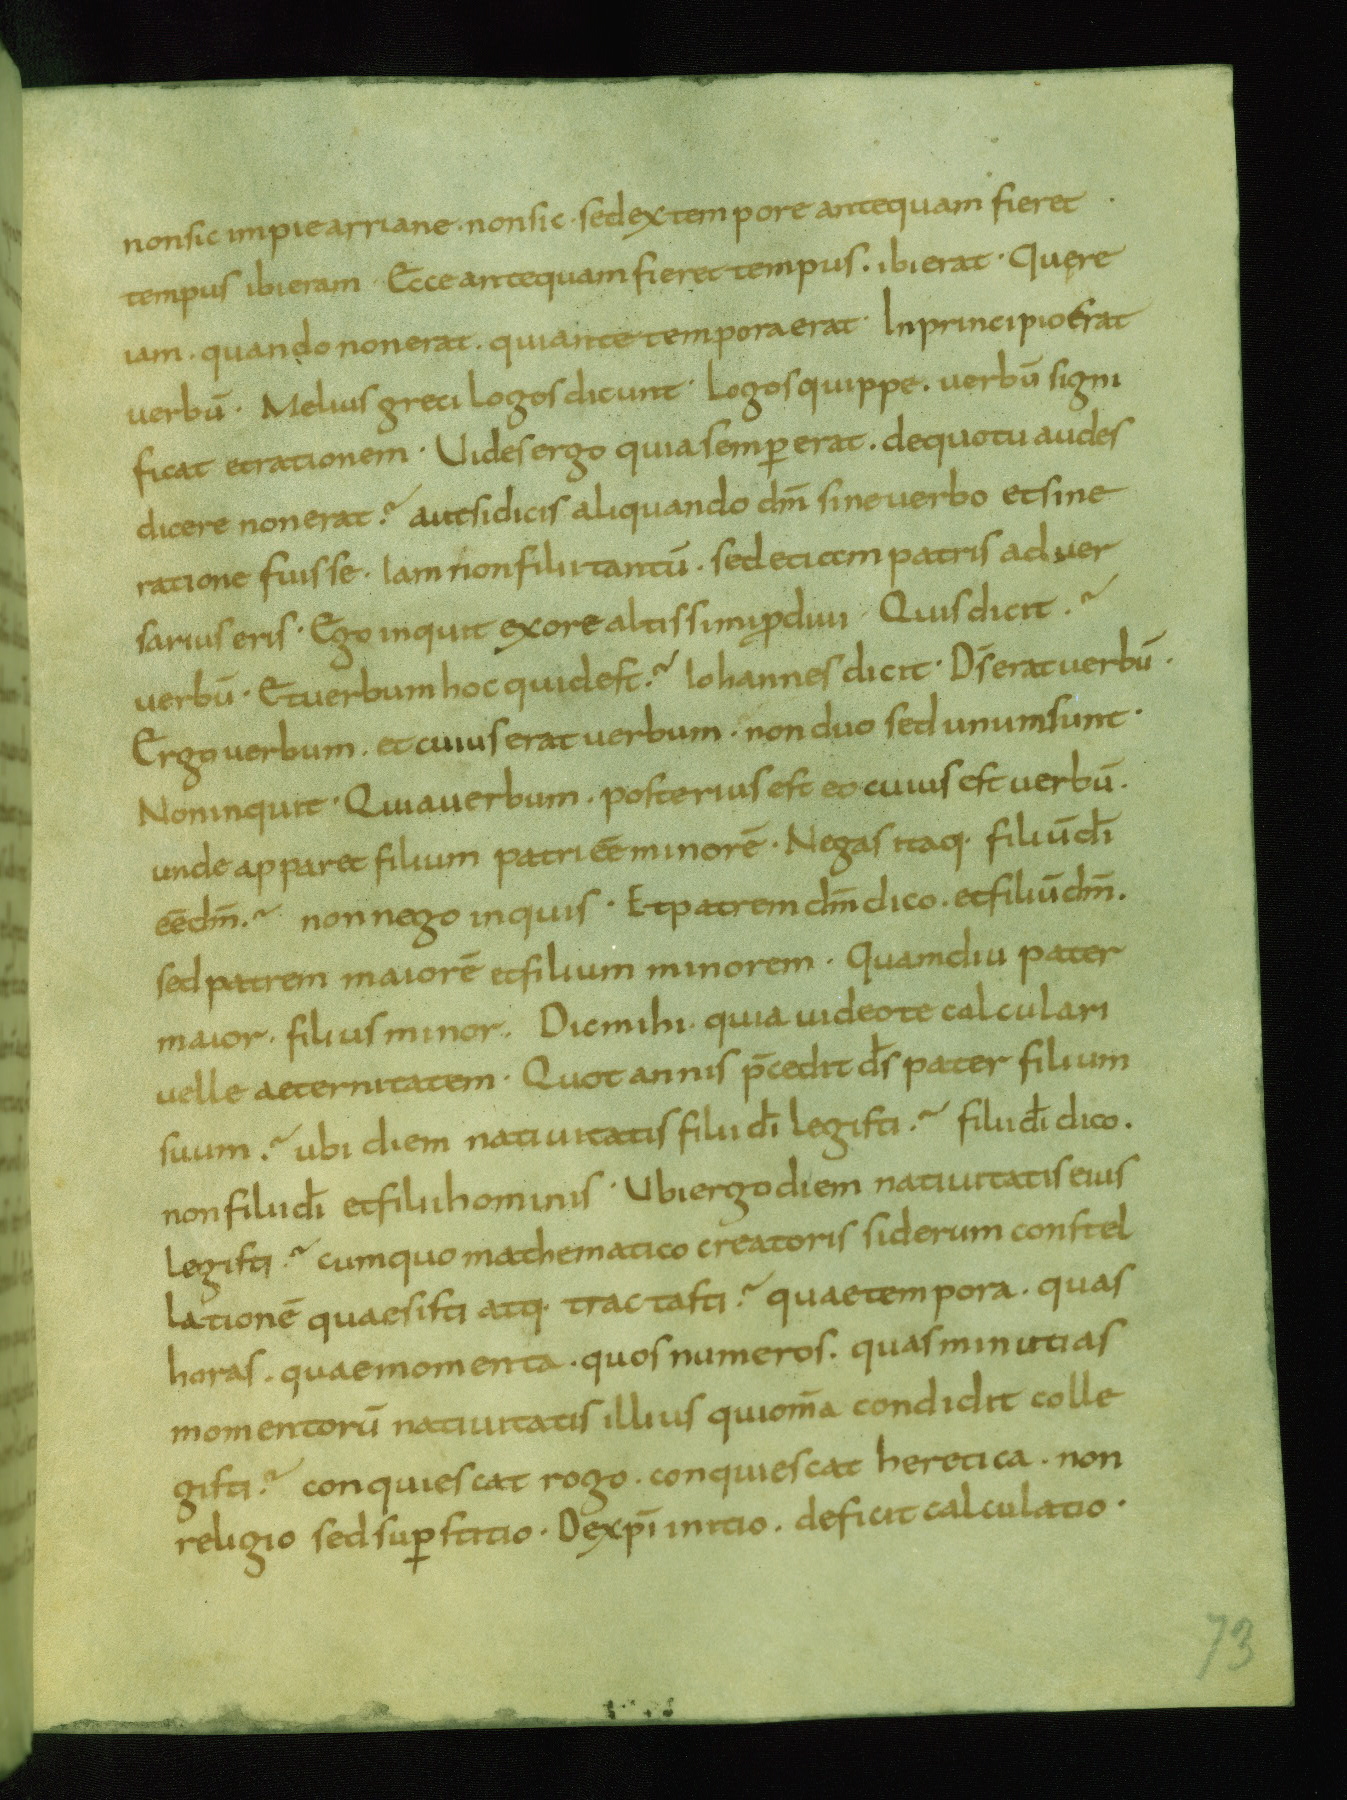 non sic impie arriane · non sic · sed ex tempore antequam fieret ·
tempus ibi eram · Ecce antequam fieret tempus . ibi erat · Quęre
iam . quando non erat . qui ante tempora erat · In principio erat
uerbū · Melius greci logos dicunt · logos quippe . uerbū signi
ficat et rationem · Uides ergo quia semꝑ erat . de quo tu audes
dicere non erat .? aut si dicis aliquando dm̄ sine uerbo et sine
ratione fuisse · Iam non filii tantū . sed etiam patris aduer
sarius eris · Ego inquit ex ore altissimi ꝓdiui · Quis dicit .?
uerbū · Et uerbum hoc quid est .? Iohannes dicit · Ds̄ erat uerbū ·
Ergo uerbum . et cuius erat uerbum . non duo sed unum sunt ·
Non inquit · Quia uerbum . posterius est eo cuius est uerbū .
unde apparet filium patri ēē minorē · Negas itaq· filiū dī
ēē dm̄ .? non nego inquis · Et patrem dm̄ dico . et filiū dm̄ .
sed patrem maiorē et filium minorem · Quamdiu pater
maior . filius minor . Dic mihi . quia uideo te calculari
uelle aeternitatem · Quot annis p̄cedit ds̄ pater filium
suum .? ubi diem natiuitatis filii dī legisti .? filii dī dico .
non filii dī et filii hominis · Ubi ergo diem natiuitatis eius
legisti .? cum quo mathematico creatoris siderum constel
lationē quaesisti atq· tractasti .? quae tempora . quas
horas . quae momenta . quos numeros . quas minutias
momentorū natiuitatis illius qui om̄a condidit colle
gisti .? conquiescat rogo . conquiescat heretica . non
religio sed suꝑstitio · De xp̄i initio . deficit calculatio ·
73